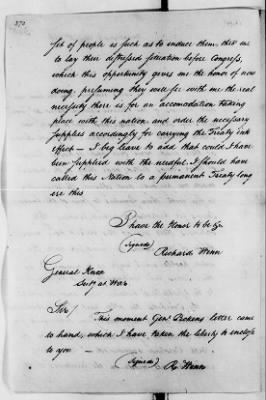 Set of people is such as to induce them, thro' me
to lay their distressed situation before Congress,
which this opportunity gives me the honor of now
doing, presuming they will see with me the real
necessity there is for an accomodation taking
place with this nation and order the necessary
supplies accordingly for carrying the Treaty into
effect — I beg leave to add that could I have
been supplied with the needful, I should have
called this Nation to a permanent Treaty long
ere this
I have the Honor to be &c
(Signed)
Richard Winn
General Knox
Secy at War
Sir/
This moment Genl Pickens letter came
to hand, which I have taken the liberty to enclose
to you —
(Signed)
R. Winn